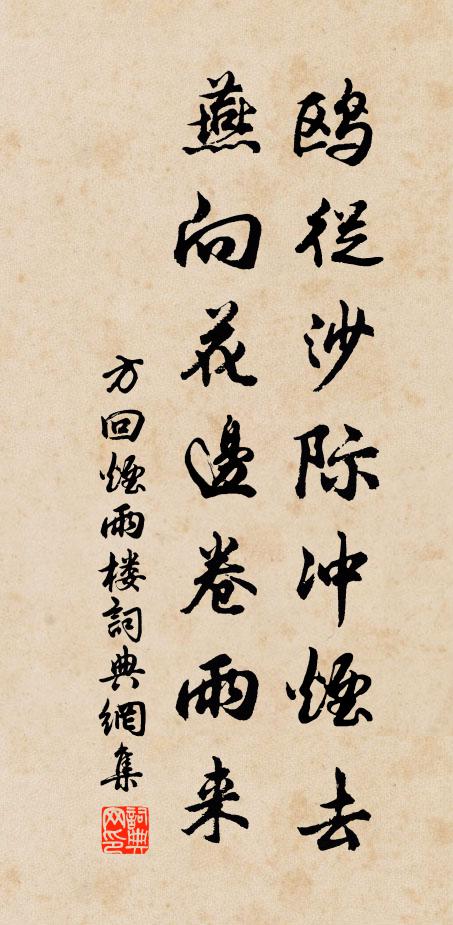 鸥從沙际冲煙去
燕向花邊卷雨来
方回煙雨楼詞典網集
詞典网印